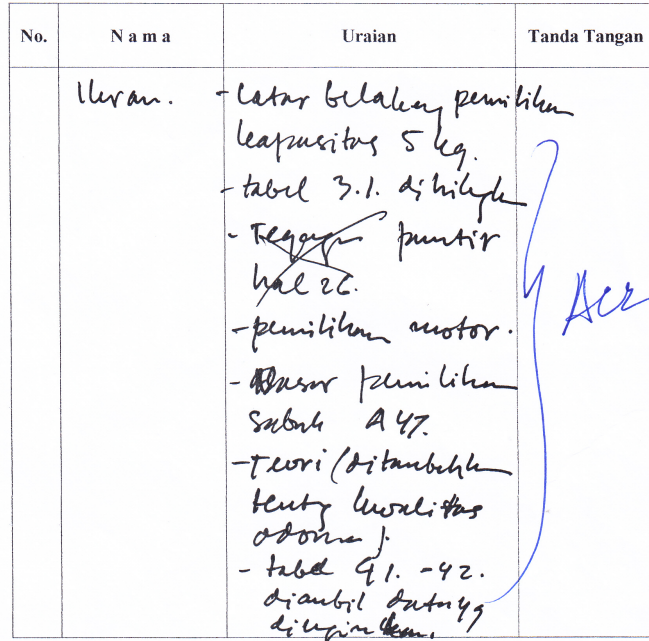 No. Nama Uraian Tanda Tangan
Ikran. - Latar belakang pemilihan
kapasitas 5 kg.
- tabel 3.1. dihilangkan
- Tegangan puntir
hal 26.
- pemilihan motor.
- Dasar pemilihan
Sabuk A 47.
- Teori (ditambahkan
tentang kwalitas
adonan).
- tabel 41. - 42.
diambil data yg
diinginkan.
Acc